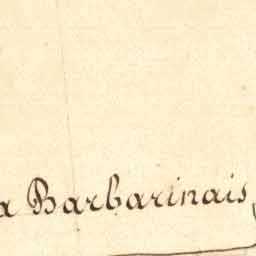 a Barbarinais,